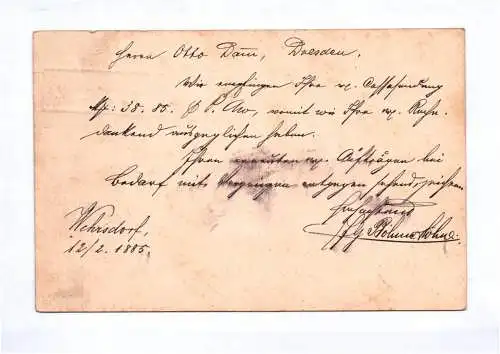 Herrn Otto Dam, Dresden.
Wir empfingen Ihre w. Cassasendung
M: 38.85. P. womit wir Ihre w. Rechn.
dankend ausgeglichen haben.
Ihren erneuten w. Aufträgen bei
Bedarf mit Vergnügen entgegen sehend, zeichnen
Wehrsdorf,
12/2. 1885.